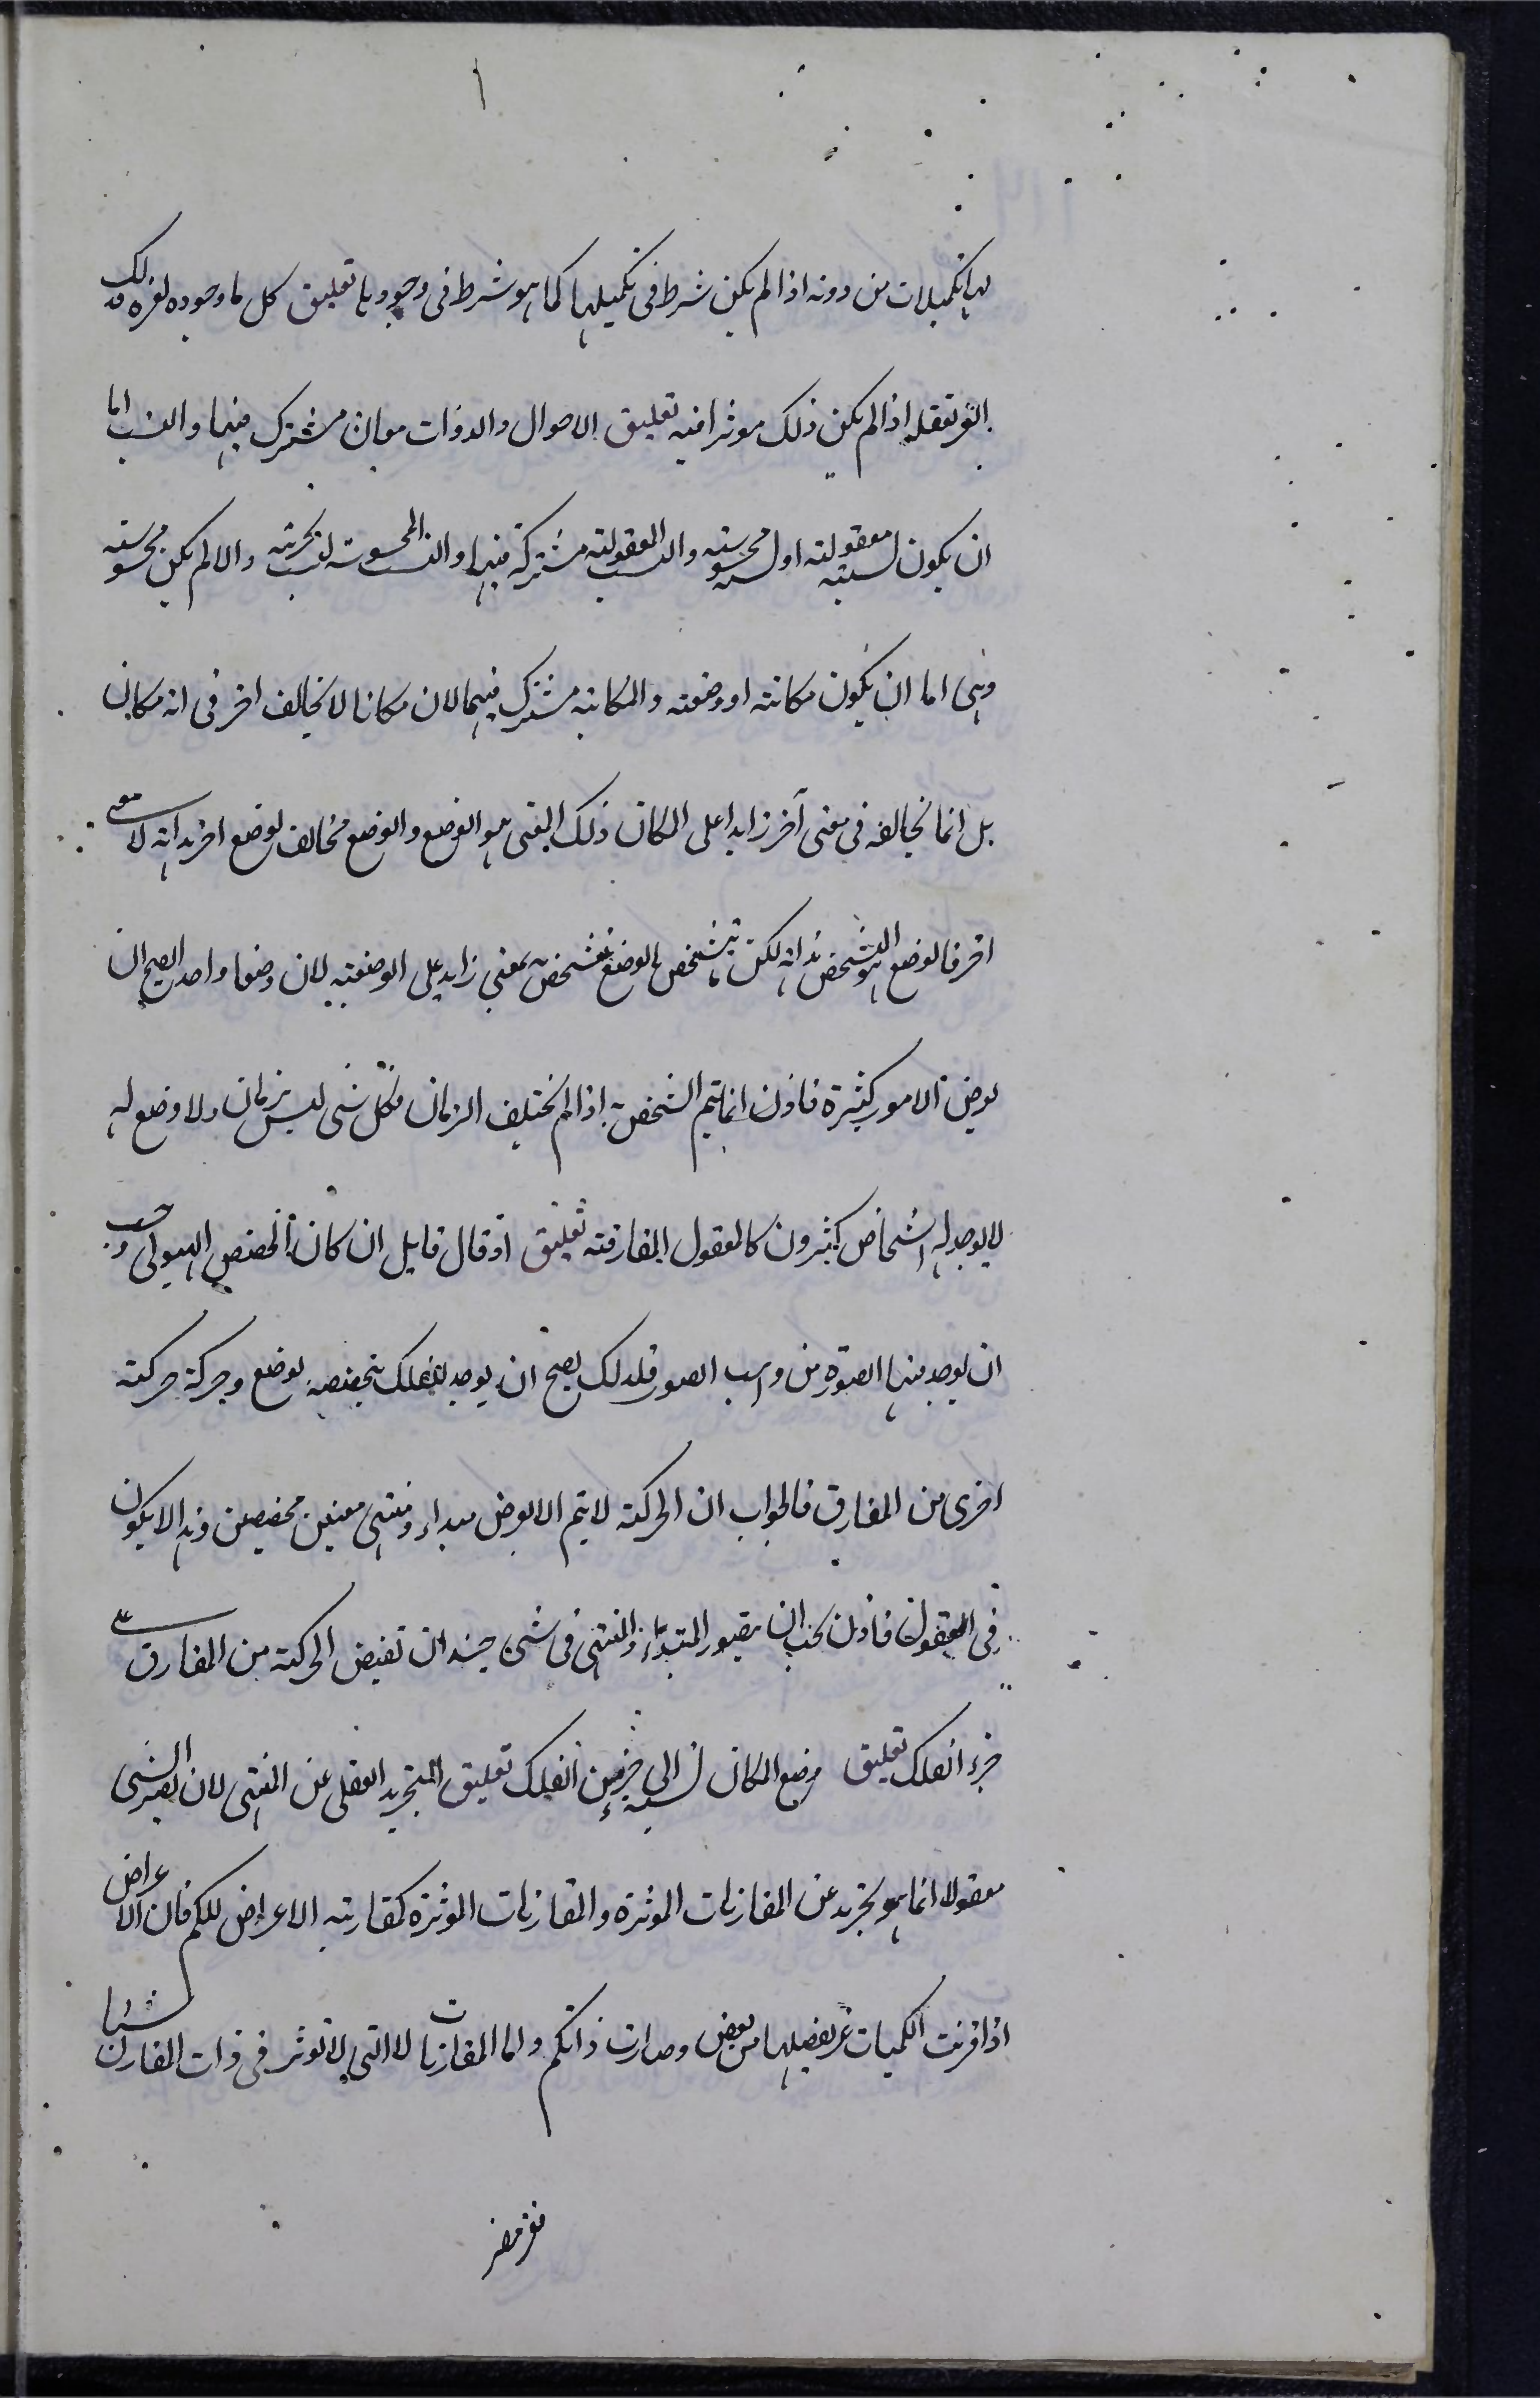 لها تكميلات من دونه اذا لم يكن شرط فى تكميلها كما هو شرط فى وجودها تعليق كل ما وجوده لغيره فذلك
الغير تعقله اذا لم يكن ذلك موثرا فيه تعليق الاحوال والذوات معان مشترك فيها والنسب اما
ان يكون نسبته معقولته او نسبته محسوسته والنسب المعقولته مشتركة فيها والنسب المحسوسته لنسب بحريته والا لم يكن محسوسته
وهى اما ان يكون مكانته او وضعته والمكانيه مشترك فيهما لان مكانا لا يخالف اخر فى انه مكان
بل انما يخالفه فى معنى آخر زايدا على المكان ذلك المعنى هو الوضع والوضع مخالف لوضع اخر بذاته لا معنى
اخر فالوضع هو المشخص بذاته لكن يتشخص بالوضع تشخص بمعنى زايد على الوضعيه لان وضعا واحد الصح ان
يعرض الامور كثيرة فاذن انما يتم الشخص به اذا لم يختلف الزمان فكل شى ليس بزمان ولا وضع له
لا يوجد له اشخاص كثيرون كالعقول المفارقته تعليق اذ قال قايل ان كان تخصص الهيولى وجب
ان يوجد فيها الصورة من واهب الصور فلذلك يصح ان يوجد للفلك بتخصصه بوضع وحركة حركته
اخرى من المفارق فالجواب ان الحركته لا يتم الا بعرض مبداء ومنتهى معنيين مخصصين وهذا لا يكون
فى العقول فاذن يجب ان يتصور المبتداء والمنتهى فى شى جسد ان تفيض الحركته من المفارق على
جزء الفلك تعليق وضع المكان نسبته الى جزء من الفلك تعليق التجريد العقلى عن المعنى لان يصير الشى
معقولا انما هو تجريد عن المقارنات الموثرة والمقارنات الموثرة كمقارنه الاعراض للكم فان الاعراض
اذا قرنت الكميات غر بعضها من بعض وصارت ذاتكم واما المقارنات لا التى لا توثر فى ذات المقارن شيئا